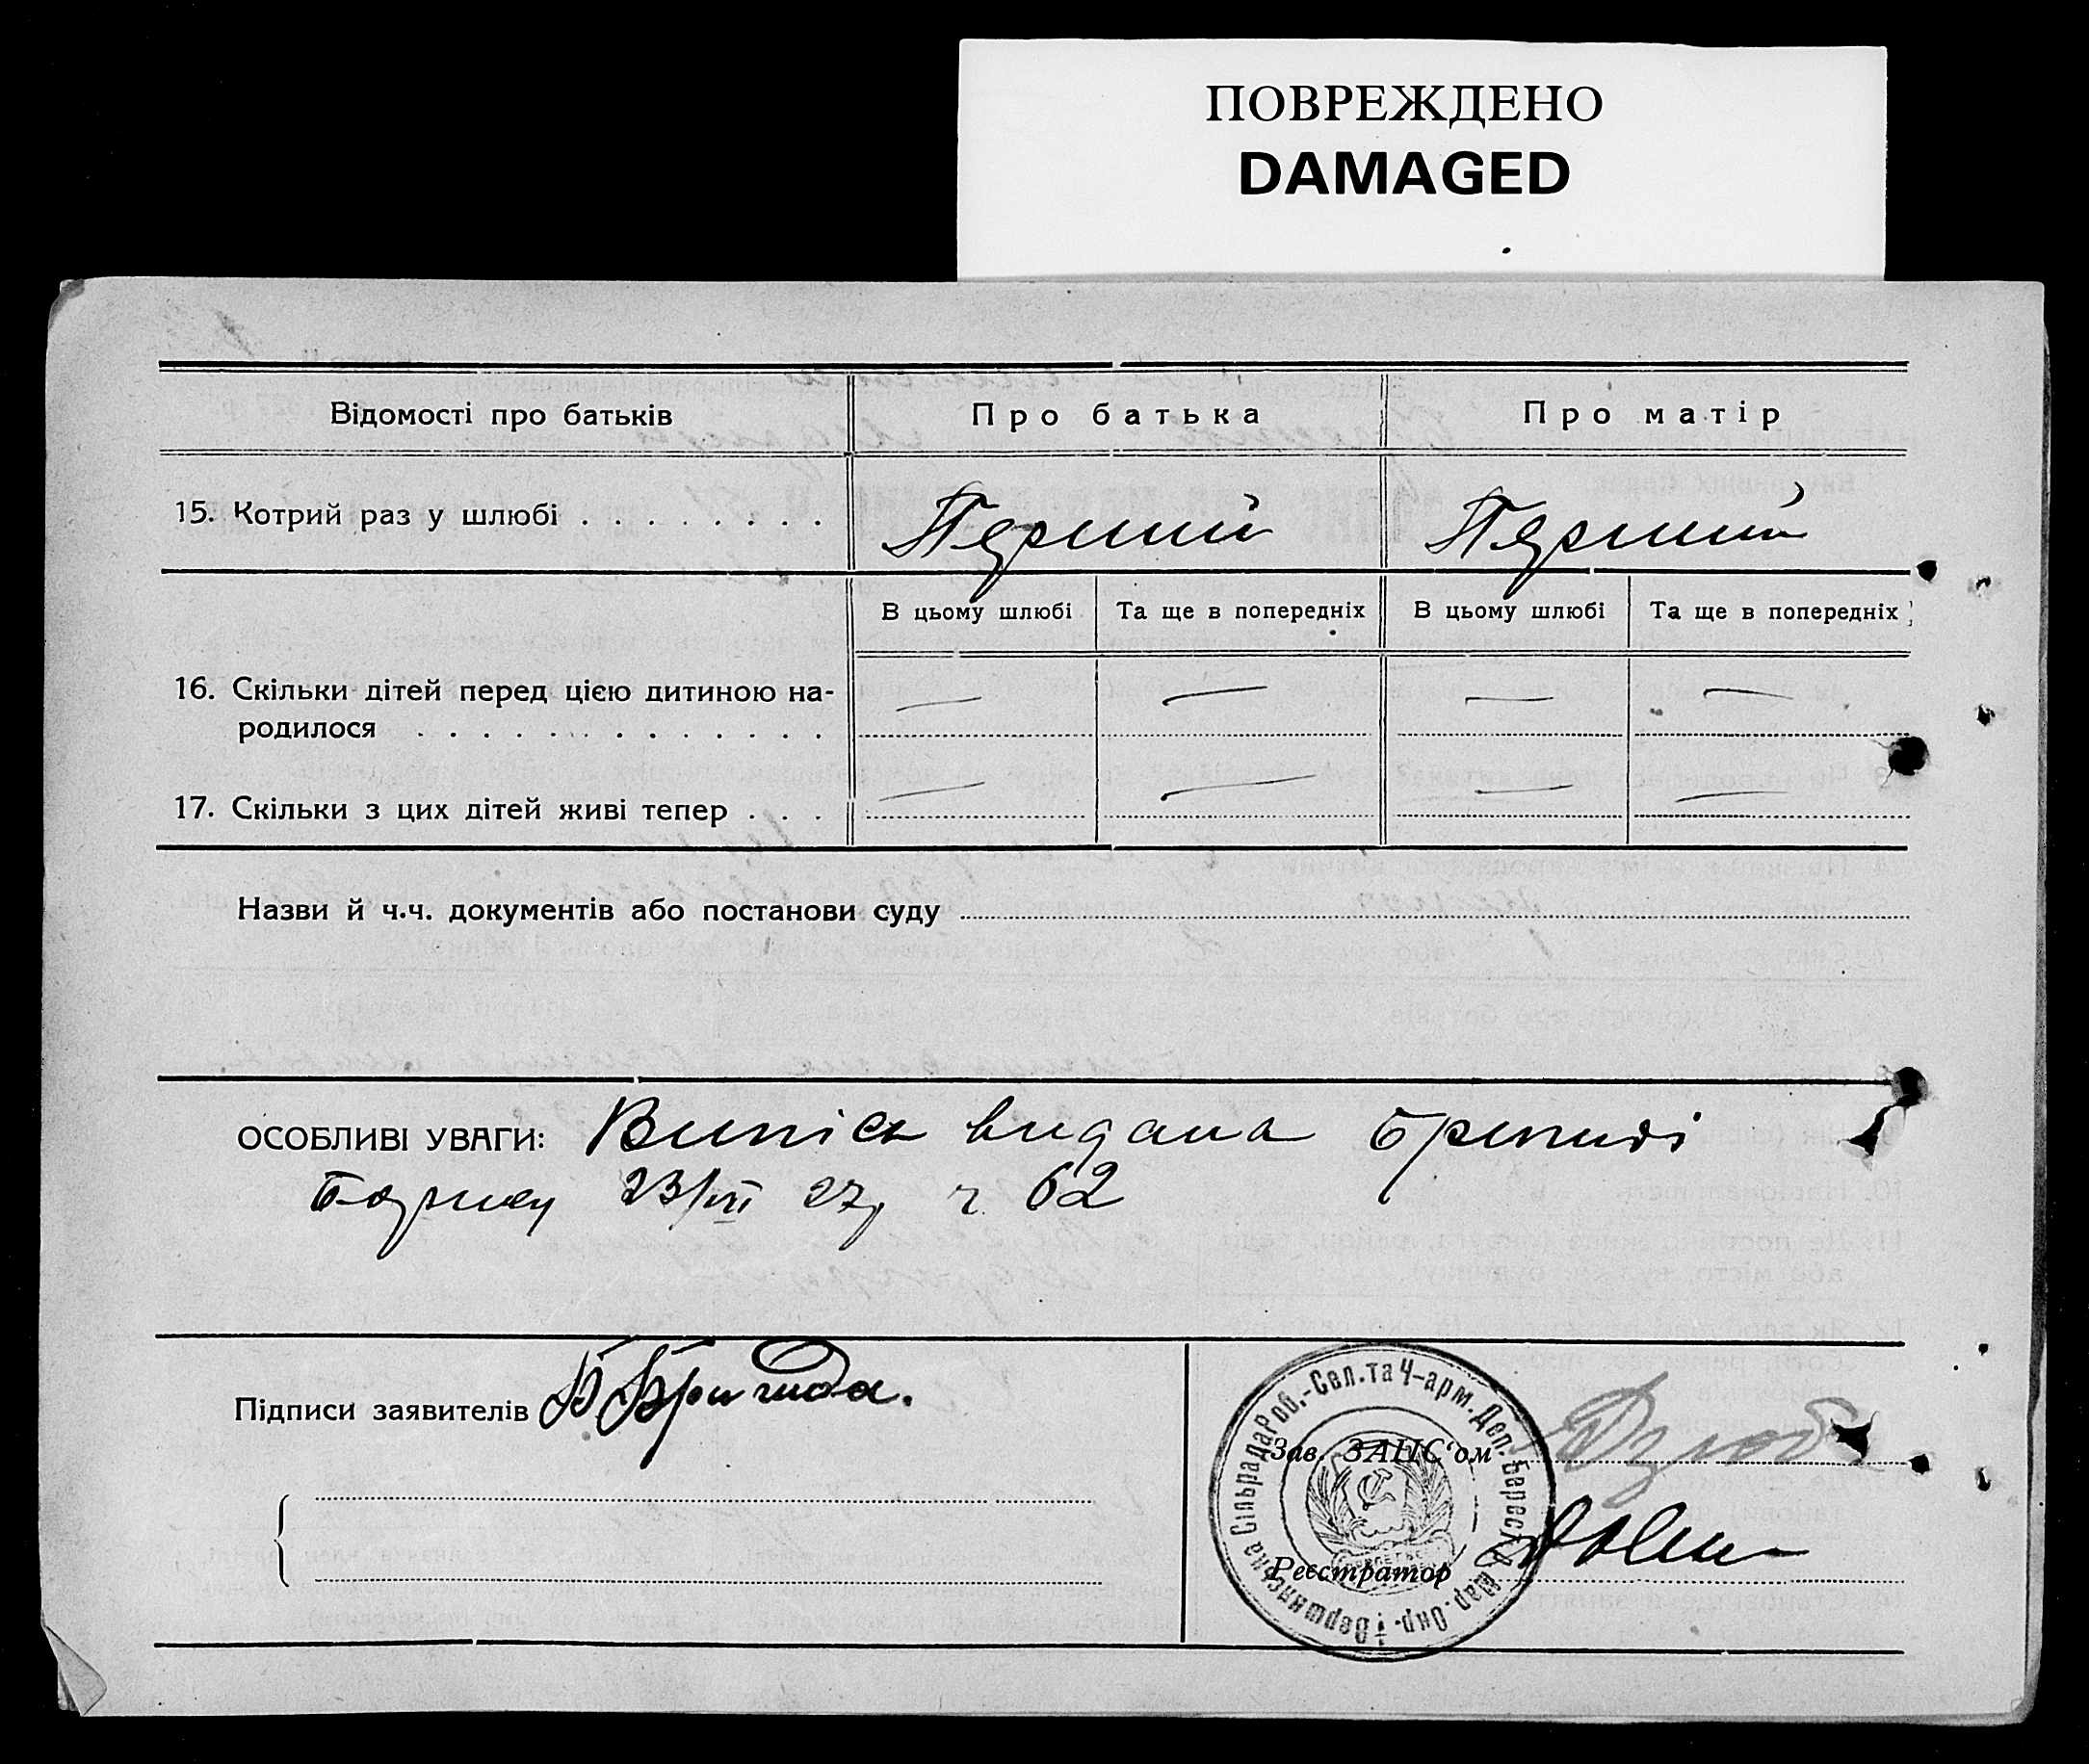 ПОВРЕЖДЕНО
DAMAGED
Відомості про батьків
Про батька
Про матір
15. Котрий раз у шлюбі . . . . . . . .
Перший
Перший
В цьому шлюбі
Та ще в попередніх
В цьому шлюбі
Та ще в попередніх
16. Скільки дітей перед цією дитиною на-
— — — —
родилося . . . . . . . . . . . . .
17. Скільки з цих дітей живі тепер . . .
— — — —
Назви й ч.ч. документів або постанови суду
ОСОБЛИВІ УВАГИ: Випісь видана
23/VII 27 ч 62
Підписи заявителів
Зав. ЗАПС'ом
Реєстратор
Сільрада Роб.-Сел. та Ч-арм. Деп.